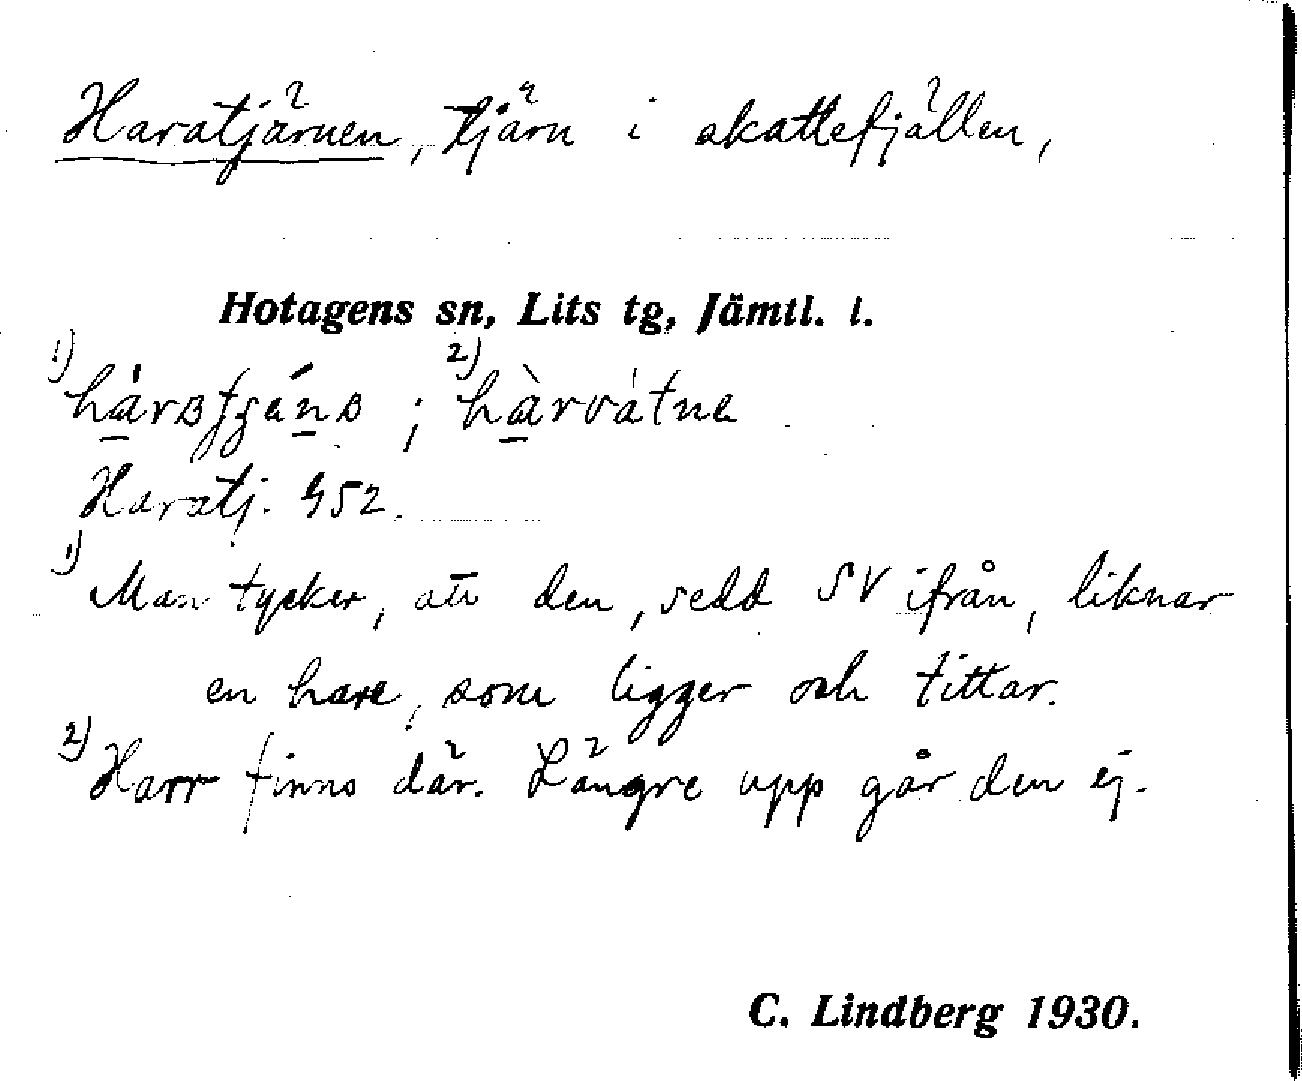 Haratjärnen, tjärn i skattefjällen,
Hotagens sn, Lits tg, Jämtl. l.
1) 2)
Haratj. 952.
1) Man tycker, att den, sedd SV ifrån, liknar
en hare, som ligger och tittar.
2) Harr finns där. Längre upp går den ej.
C. Lindberg 1930.